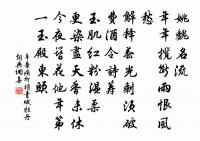 姚魏名流
年年攬斷雨恨風
愁
解釋春光剩須破
費酒令詩籌
玉肌紅粉溫柔
更染盡天香未休
今夜簪花他年第
一玉殿東頭
辛棄疾柳梢青賦牡丹
詞典網集